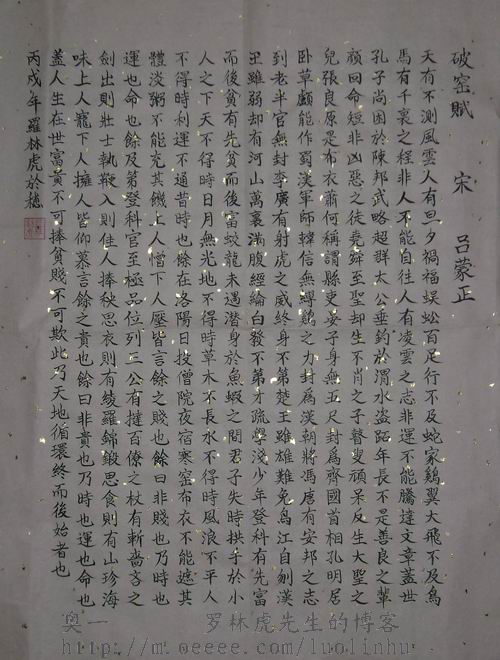 破窑賦 宋 呂蒙正
天有不測風雲人有旦夕禍福蜈蚣百足行不及蛇家鷄翼大飛不及鳥
馬有千裏之程非人不能自往人有凌雲之志非運不能騰達文章蓋世
孔子尚困於陳邦武略超群太公垂釣於渭水盜跖年長不是善良之輩
顔回命短非凶惡之徒堯舜至聖却生不肖之子瞽叟頑呆反生大聖之
兒張良原是布衣蕭何稱謂縣吏晏子身無五尺封爲齊國首相孔明居
卧草廬能作蜀漢軍師韓信無縛鷄之力封爲漢朝將馮唐有安邦之志
到老半官無封李廣有射虎之威終身不第楚王雖雄難免烏江自刎漢
王雖弱却有河山萬裏滿腹經綸白發不第才疏學淺少年登科有先富
而後貧有先貧而後富蛟龍未遇潜身於魚蝦之間君子失時拱手於小
人之下天不得時日月無光地不得時草木不長水不得時風浪不平人
不得時利運不通昔時也餘在洛陽日投僧院夜宿寒窑布衣不能遮其
體淡粥不能充其饑上人憎下人壓皆言餘之賤也餘曰非賤也乃時也
運也命也餘及第登科官至極品位列三公有撻百僚之杖有斬嗇吝之
劍出則壯士執鞭入則佳人捧秧思衣則有綾羅錦緞思食則有山珍海
味上人寵下人擁人皆仰慕言餘之貴也餘曰非貴也乃時也運也命也
蓋人生在世富貴不可捧貧賤不可欺此乃天地循環終而後始者也
丙戌年羅林虎於穗
奥一 罗林虎先生的博客
http://m.oeeee.com/luolinhu